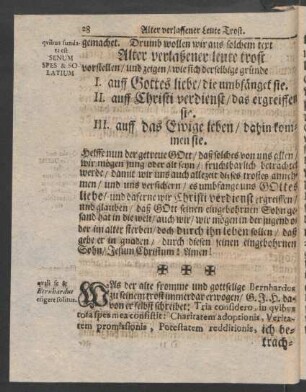 28 Alter verlassener Leute Trost.
gemachet. Drumb wollen wir aus solchem text
SENUM
SPES & SO-
LATIUM
Alter verlaßener leute trost
vorstellen/ und zeigen/ wie sich derselbige gründe
I. auff Gottes liebe/ die umbfänget sie.
II. auff Christi verdienst/ das ergreiffet
sie.
III. auff das Ewige leben/ dahin kom-
men sie.
Helffe nun der getreue GOtt/ daß solches von uns allen/
wir mögen jung oder alt seyn/ fruchtbarlich betrachtet
werde/ damit wir uns auch allezeit dieses trostes anneh-
men/ und uns versichern/ es umbfange uns GOttes
liebe/ und daferne wir Christi verdienst ergreiffen/
und glauben/ daß GOtt seinen eingebohrnen Sohn ge-
sand hat in die welt/ auch wir/ wir mögen in der jugend o-
der im alter sterben/ doch durch ihn leben sollen/ daß
gebe er in gnaden/ durch diesen seinen eingebohrnen
Sohn/ Jesum Christum! Amen!
Bernhardus
WAs der alte fromme und gottselige Bernhardus
zu seinem trost immerdar erwogen/ G. J. H. da-
von er selbst schreibet: Tria considero, in qvibus
tota spes mea consistit: Charitatem adoptionis, Verita-
tem promissionis, Potestatem redditionis, ich be-
trach-